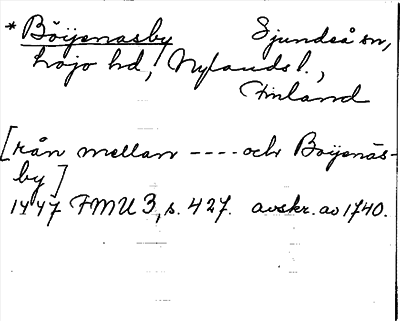 * Böijenasby Sjundeå sn,
Lojo hd, Nylands l.,
Finland
[rån mellan ---- och Boijenäs-
by]
1447 FMU 3, s. 427. avskr. av 1740.